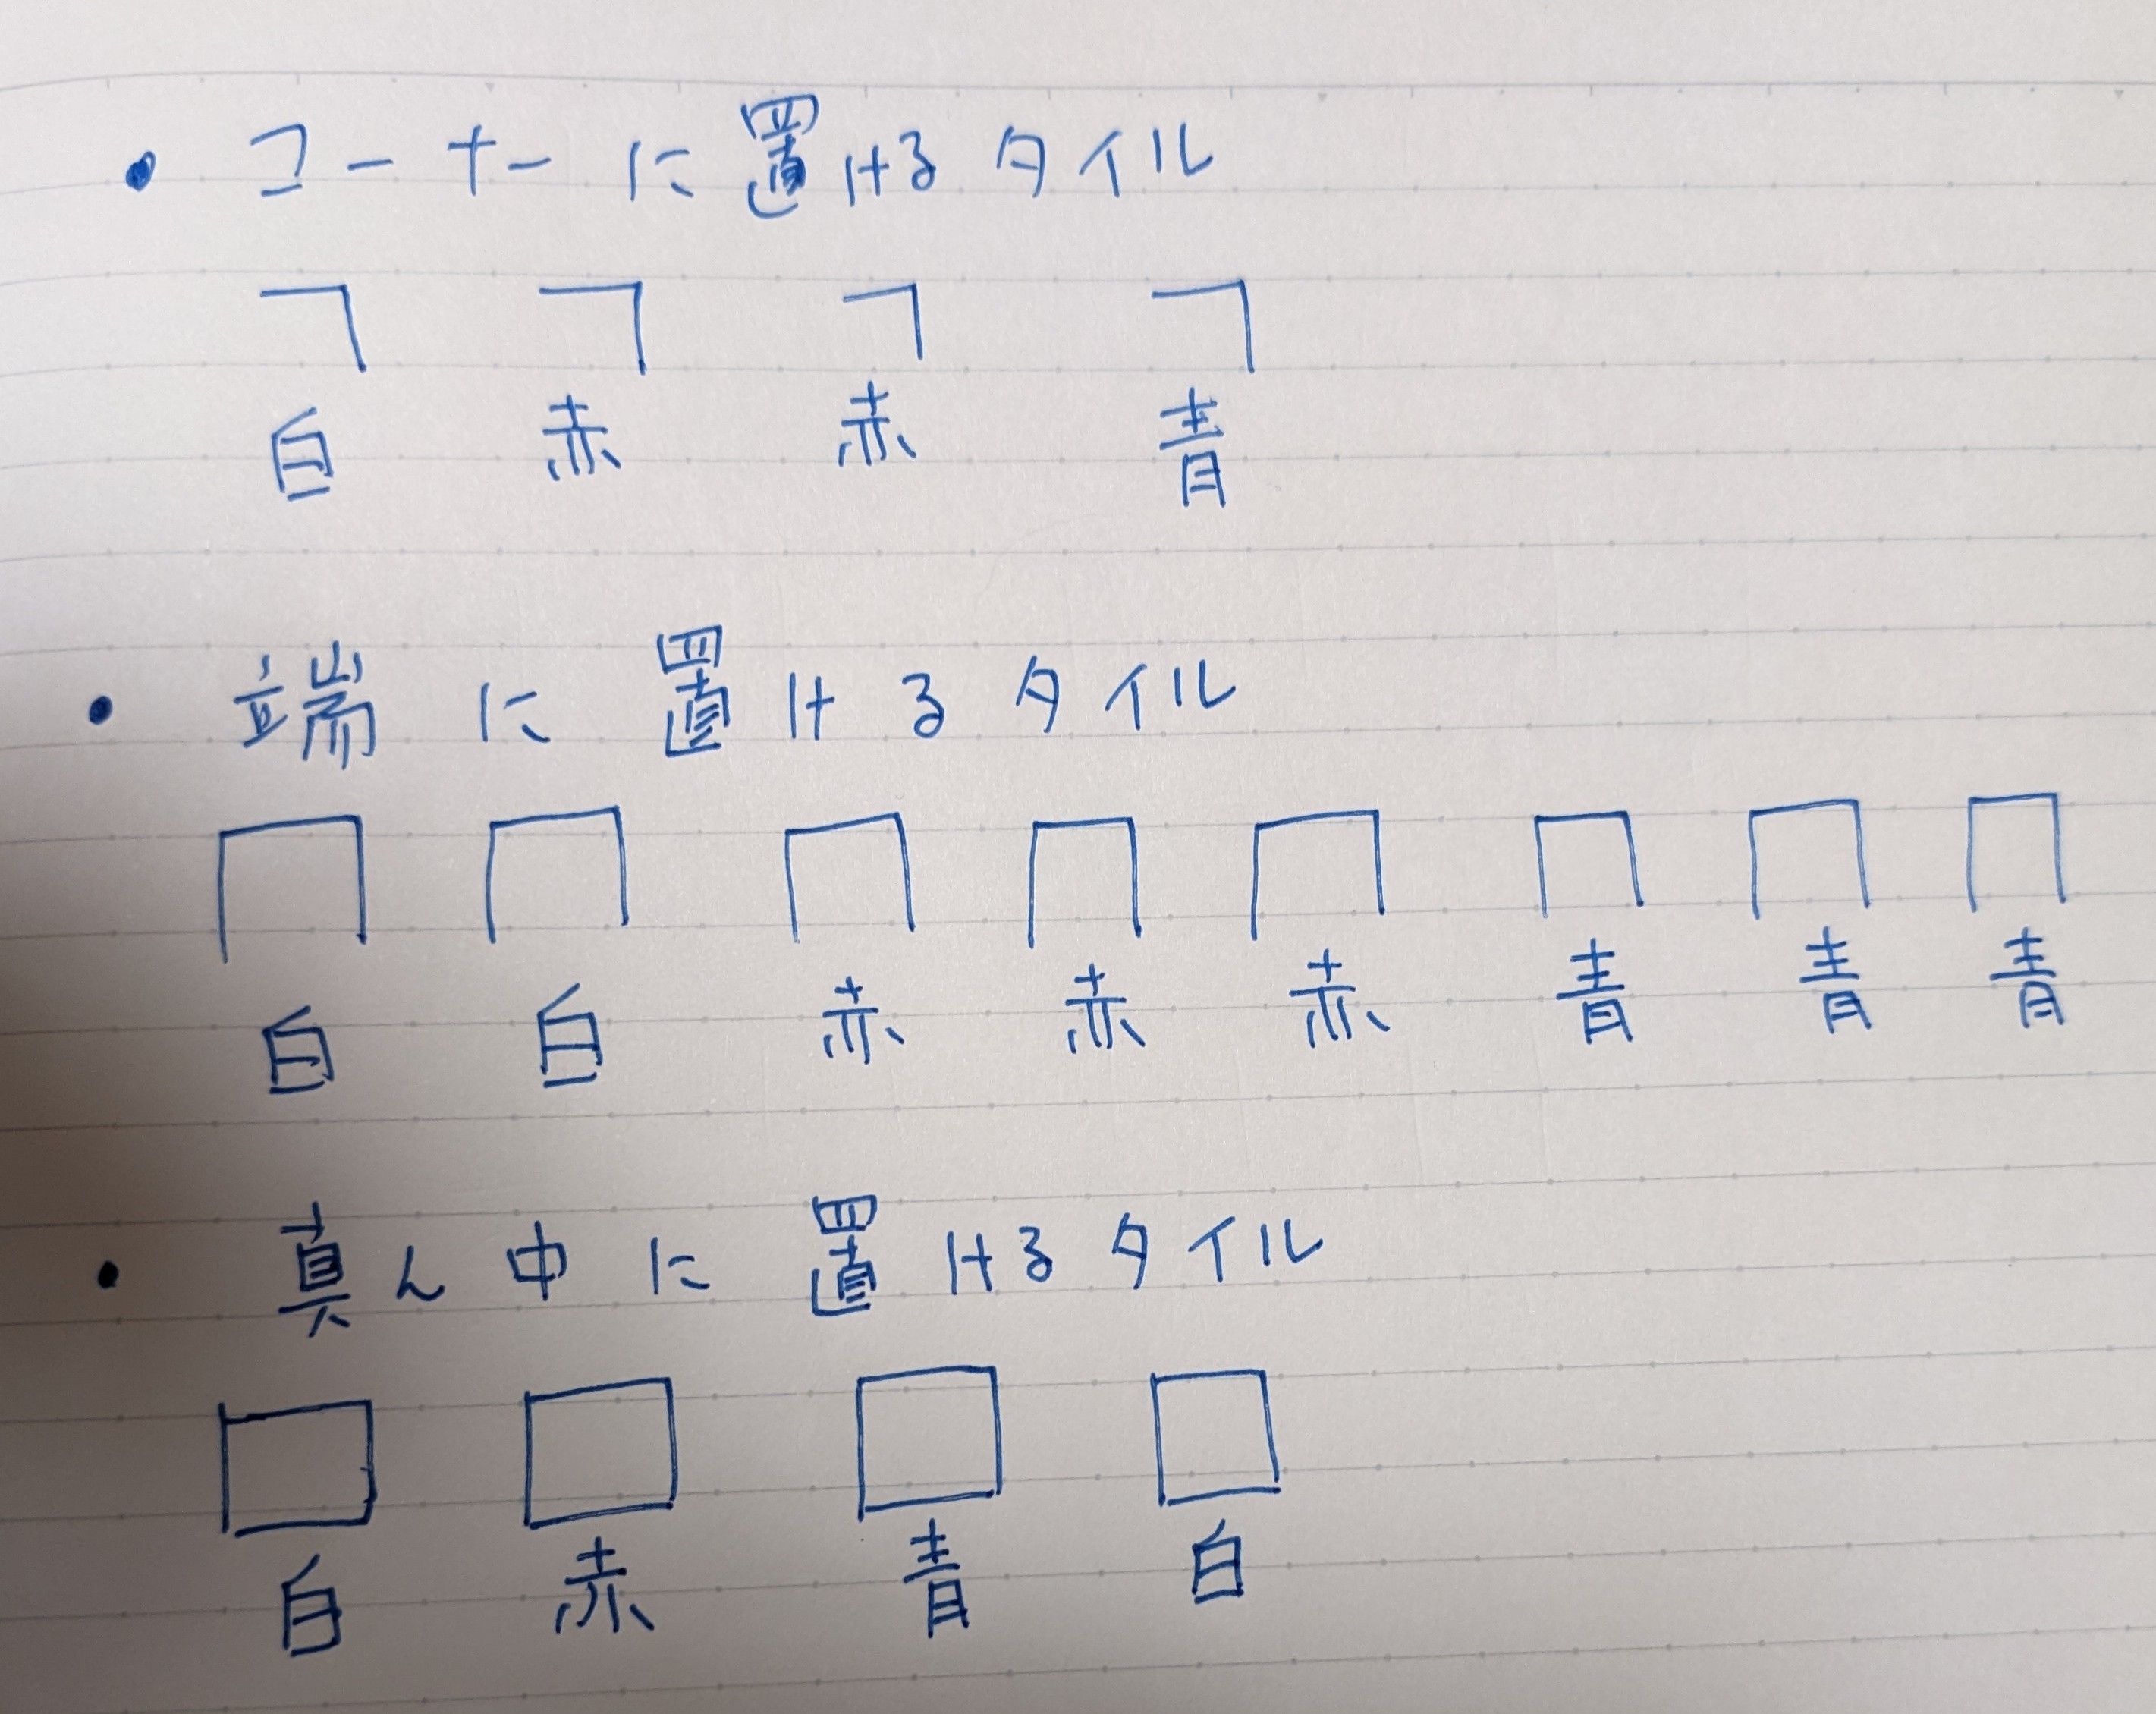 ・コーナーに置けるタイル
白 赤 赤 青
・端に置けるタイル
白 白 赤 赤 赤 青 青 青
・真ん中に置けるタイル
白 赤 青 白